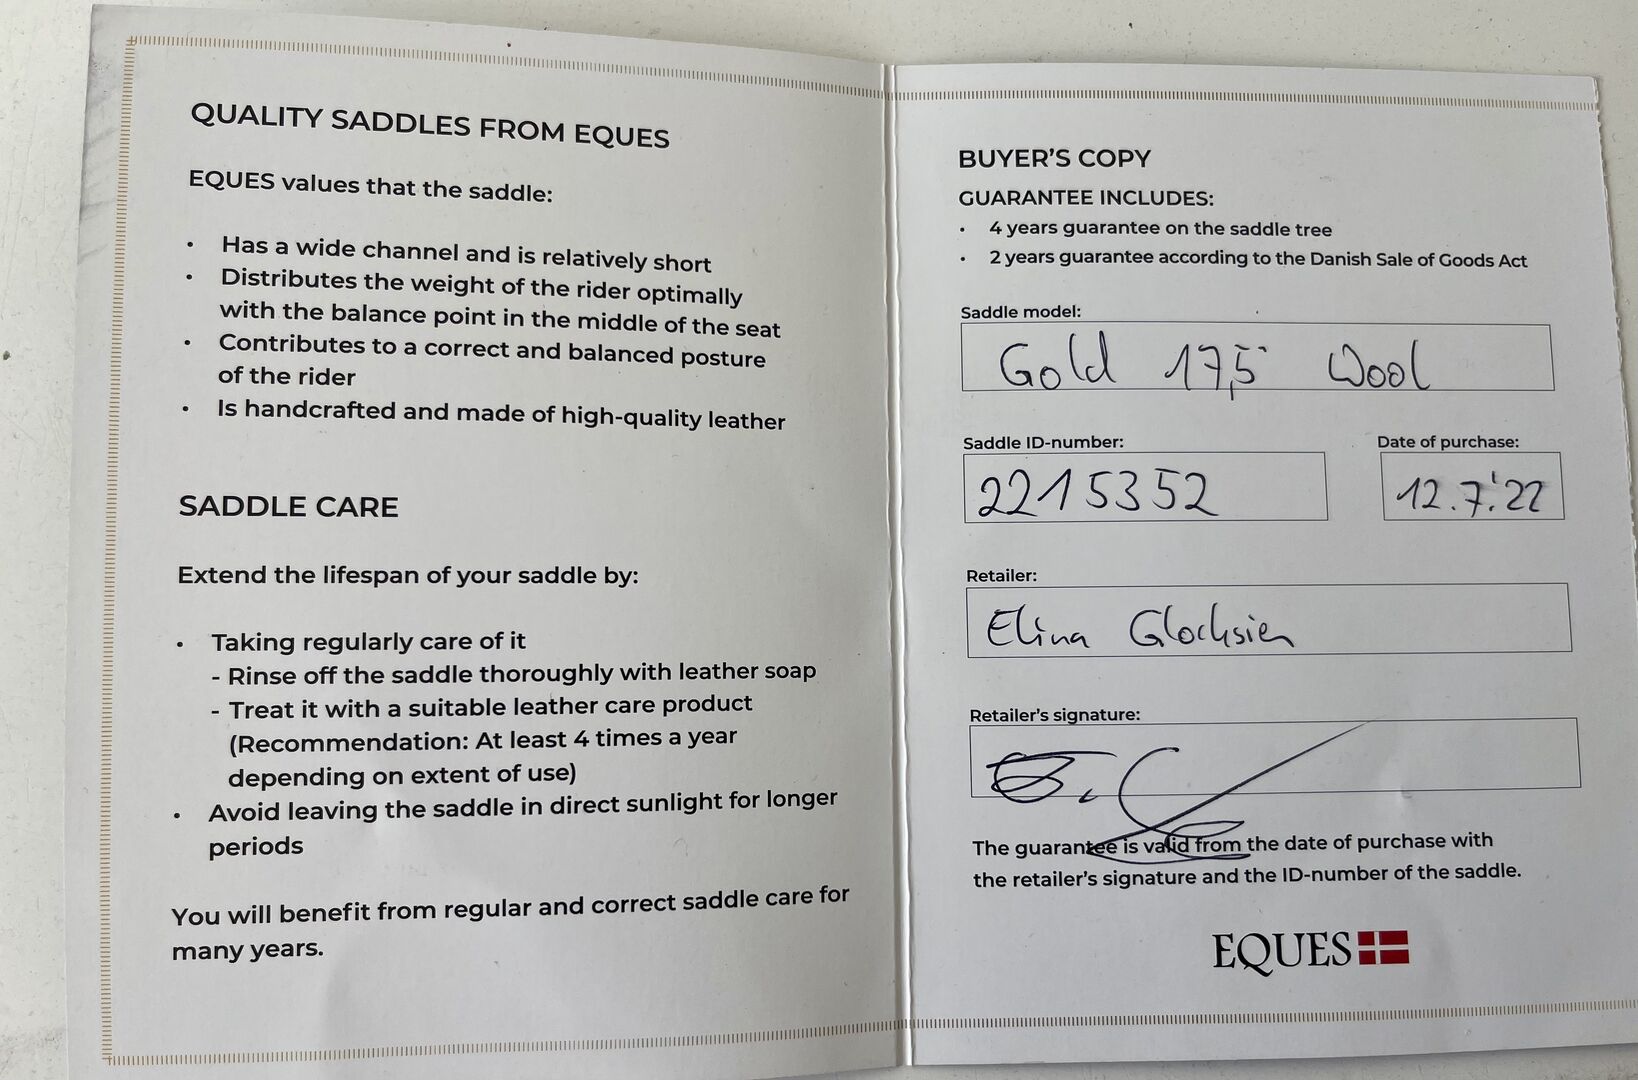 QUALITY SADDLES FROM EQUES
EQUES values that the saddle:
• Has a wide channel and is relatively short
• Distributes the weight of the rider optimally
with the balance point in the middle of the seat
• Contributes to a correct and balanced posture
of the rider
• Is handcrafted and made of high-quality leather
SADDLE CARE
Extend the lifespan of your saddle by:
• Taking regularly care of it
- Rinse off the saddle thoroughly with leather soap
- Treat it with a suitable leather care product
(Recommendation: At least 4 times a year
depending on extent of use)
• Avoid leaving the saddle in direct sunlight for longer
periods
You will benefit from regular and correct saddle care for
many years.
BUYER'S COPY
GUARANTEE INCLUDES:
• 4 years guarantee on the saddle tree
• 2 years guarantee according to the Danish Sale of Goods Act
Saddle model:
Gold 17,5" Wool
Saddle ID-number:
2215352
Date of purchase:
12.7.'22
Retailer:
Elina
Retailer's signature:
The guarantee is valid from the date of purchase with
the retailer's signature and the ID-number of the saddle.
EQUES